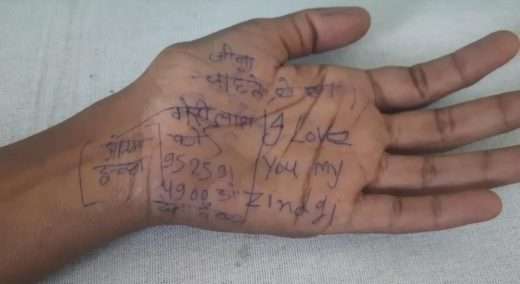 जीना
चाहते थे हम
मेरी लाश
को
952591
4900
अंतिम
इच्छा
I Love
You my
Zindgi